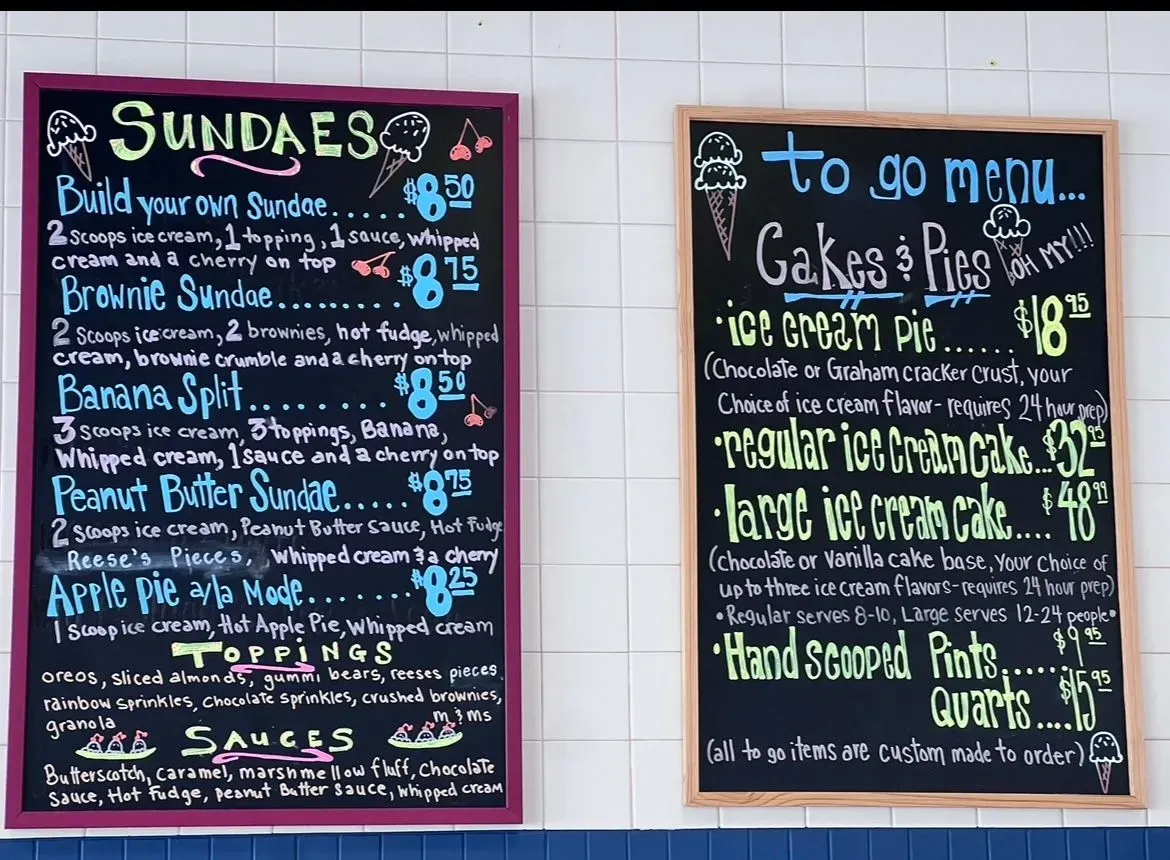 SUNDAES
Build your own Sundae...... $8.50
2 Scoops ice cream, 1 topping, 1 sauce, whipped
cream and a cherry on top
Brownie Sundae......... $8.75
2 Scoops ice cream, 2 brownies, hot fudge, whipped
cream, brownie crumble and a cherry on top
Banana Split......... $8.50
3 Scoops ice cream, 3 toppings, Banana,
Whipped cream, 1 sauce and a cherry on top
Peanut Butter Sundae..... $8.75
2 Scoops ice cream, Peanut Butter Sauce, Hot Fudge
Reese's Pieces, Whipped cream & a cherry
Apple pie a/la Mode....... $8.25
1 Scoop ice cream, Hot Apple Pie, Whipped cream
TOPPINGS
oreos, sliced almonds, gummi bears, reeses pieces
rainbow sprinkles, Chocolate sprinkles, crushed brownies,
granola m&ms
SAUCES
Butterscotch, caramel, marshmellow fluff, Chocolate
Sauce, Hot Fudge, peanut Butter sauce, whipped cream
to go menu...
Cakes & Pies OH MY!!!
•ice cream pie...... $18.95
(Chocolate or Graham cracker Crust, your
Choice of ice cream flavor- requires 24 hour prep)
•regular ice cream cake... $32.95
•large ice cream cake.... $48.99
(Chocolate or Vanilla cake base, your Choice of
up to three ice cream flavors-requires 24 hour prep)
•Regular serves 8-10, Large serves 12-24 people•
•Hand scooped Pints...... $9.95
Quarts.... $15.95
(all to go items are custom made to order)